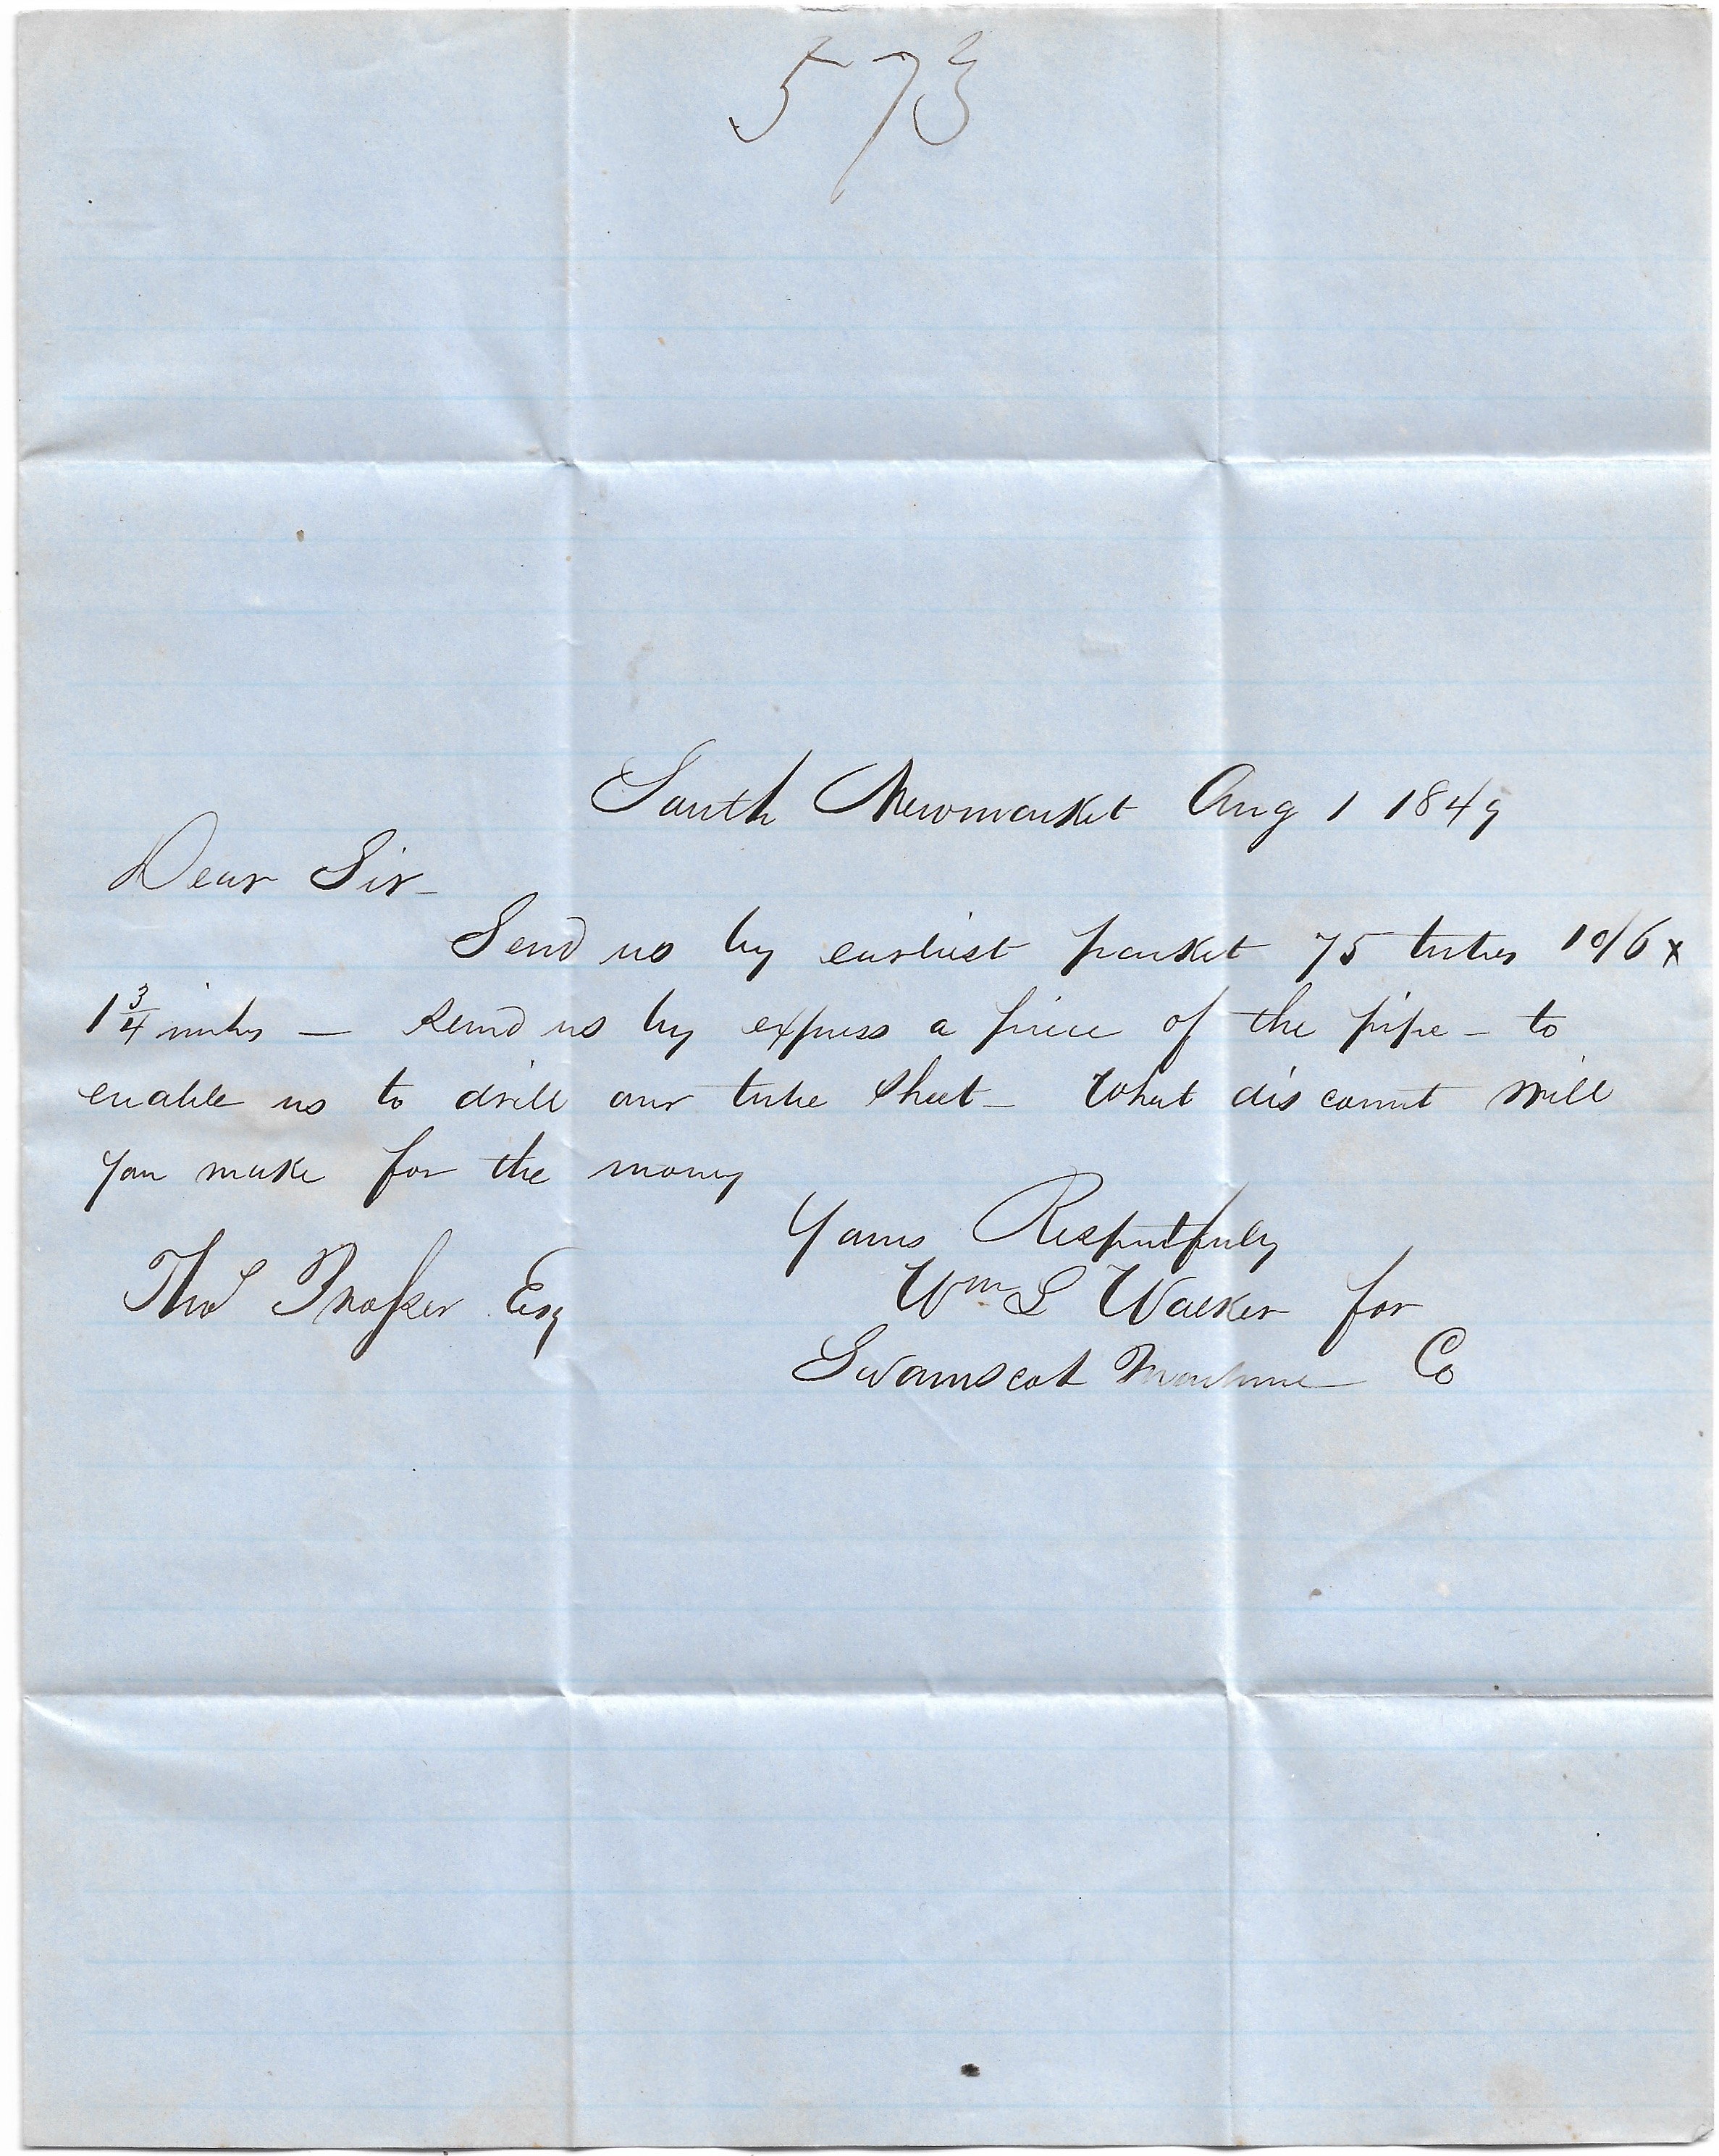 573
South Newmarket Aug 1 1849
Dear Sir-
Send us by earliest packet 75 tubes 10/6 x
1 3/4 inches — send us by express a piece of the pipe - to
enable us to drill our tube sheet - What discount will
you make for the money
Yours Respectfully
Thos Prosser Esq
Wm L Walker for
Swamscot Machine Co